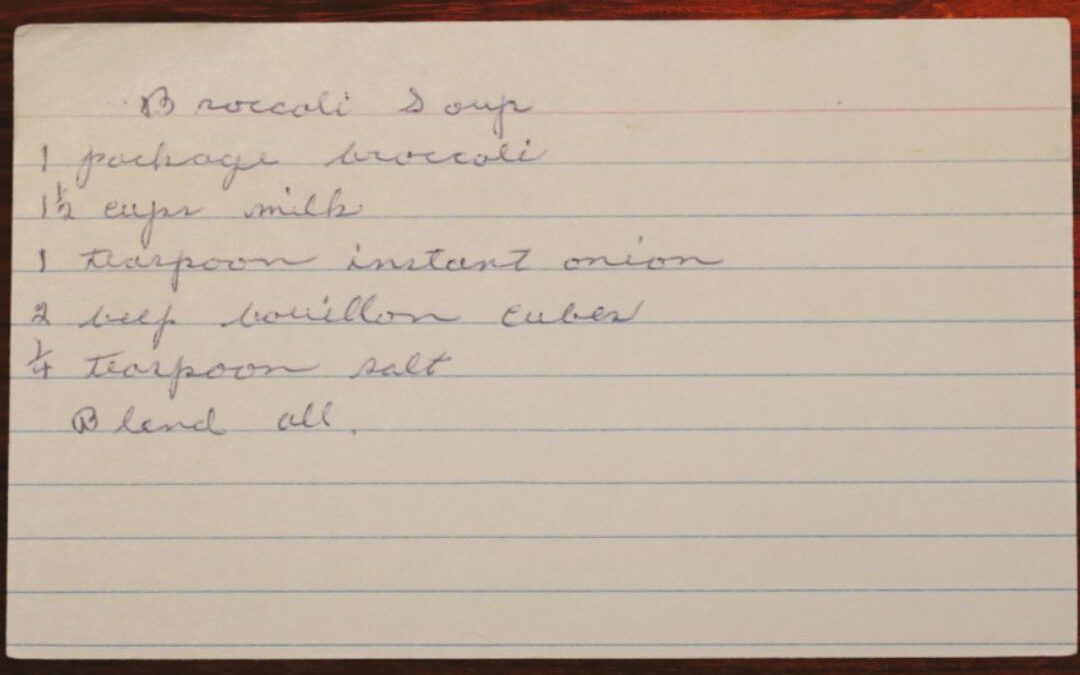 Broccoli Soup
1 package broccoli
1 1/2 cups milk
1 teaspoon instant onion
2 beef bouillon cubes
1/4 teaspoon salt
Blend all.